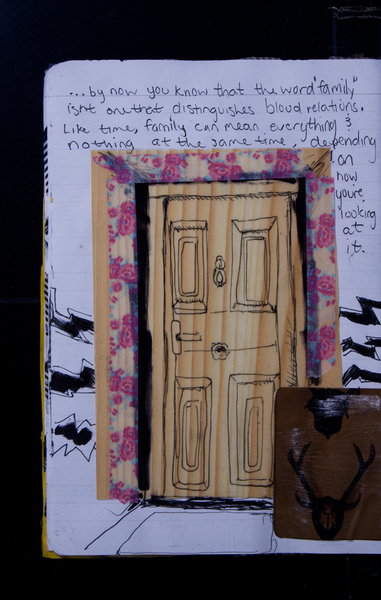 ...by now you know that the word "family"
isnt one that distinguishes bloud relations.
Like time, family can mean everything &
nothing at the same time, depending
on
how
you're
looking
at
it.